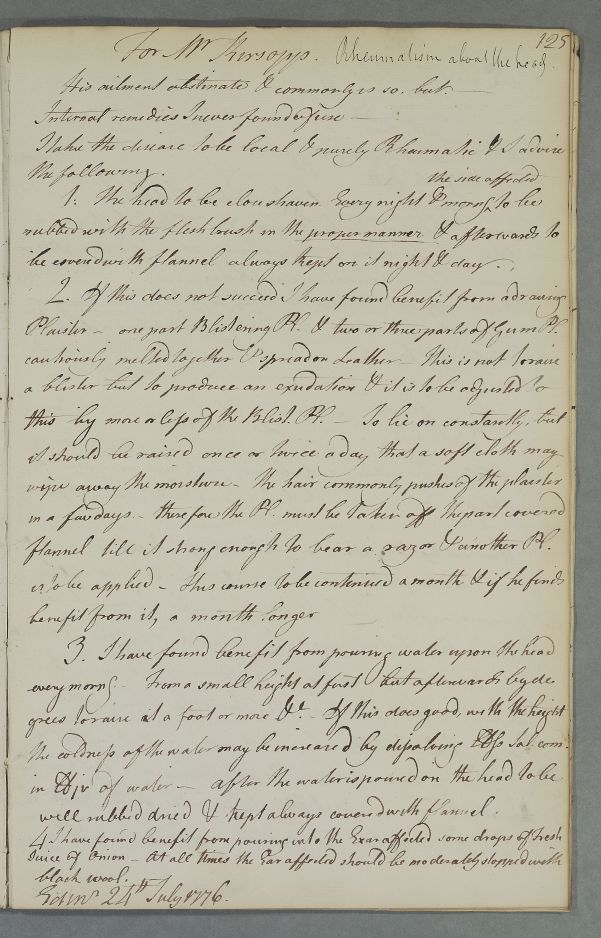 125
For Mr Kirsopp. Rheumatism about the head.
His ailment obstinate & commonly is so. but. —
Internal remedies I never found of use —
I take the disease to be local & purely Rhaumatic & I advise
the following.
1. The head to be close shaven Every night & morng the side affected to be
rubbed with the flesh brush in the proper manner & afterwards to
be covered with flannel always kept on it night & day.
2. If this does not succeed I have found benefit from a drawing
Plaister – one part Blistering Pl. & two or three parts of Gum Pl.
cautiously melted together & spread on Leather – This is not to raise
a blister but to produce an exudation & it is to be adjusted to
this by more or less of the Blist. Pl. – To lie on constantly, but
it should be raised once or twice a day that a soft cloth may
wipe away the moisture – The hair commonly pushes off the plaister
in a few days – therefore the Pl. must be taken off the part covered
flannel till it strong enough to bear a razor & another Pl.
is to be applied – this course to be continued a month & if he finds
benefit from it, a month longer
3. I have found benefit from pouring water upon the head
every morng – From a small height at first but afterwards by de
grees to raise it a foot or more &c. – If this does good, with the height
the coldness of the water may be increased by dissolving Sal. com.
in of water – after the water is poured on the head to be
well rubbed dried & kept always covered with flannel.
4 I have found benefit from pouring into the Ear affected some drops of fresh
Juice of Onion – At all times the Ear affected should be moderately stopped with
black wool.
Edinr 24th July 1776.